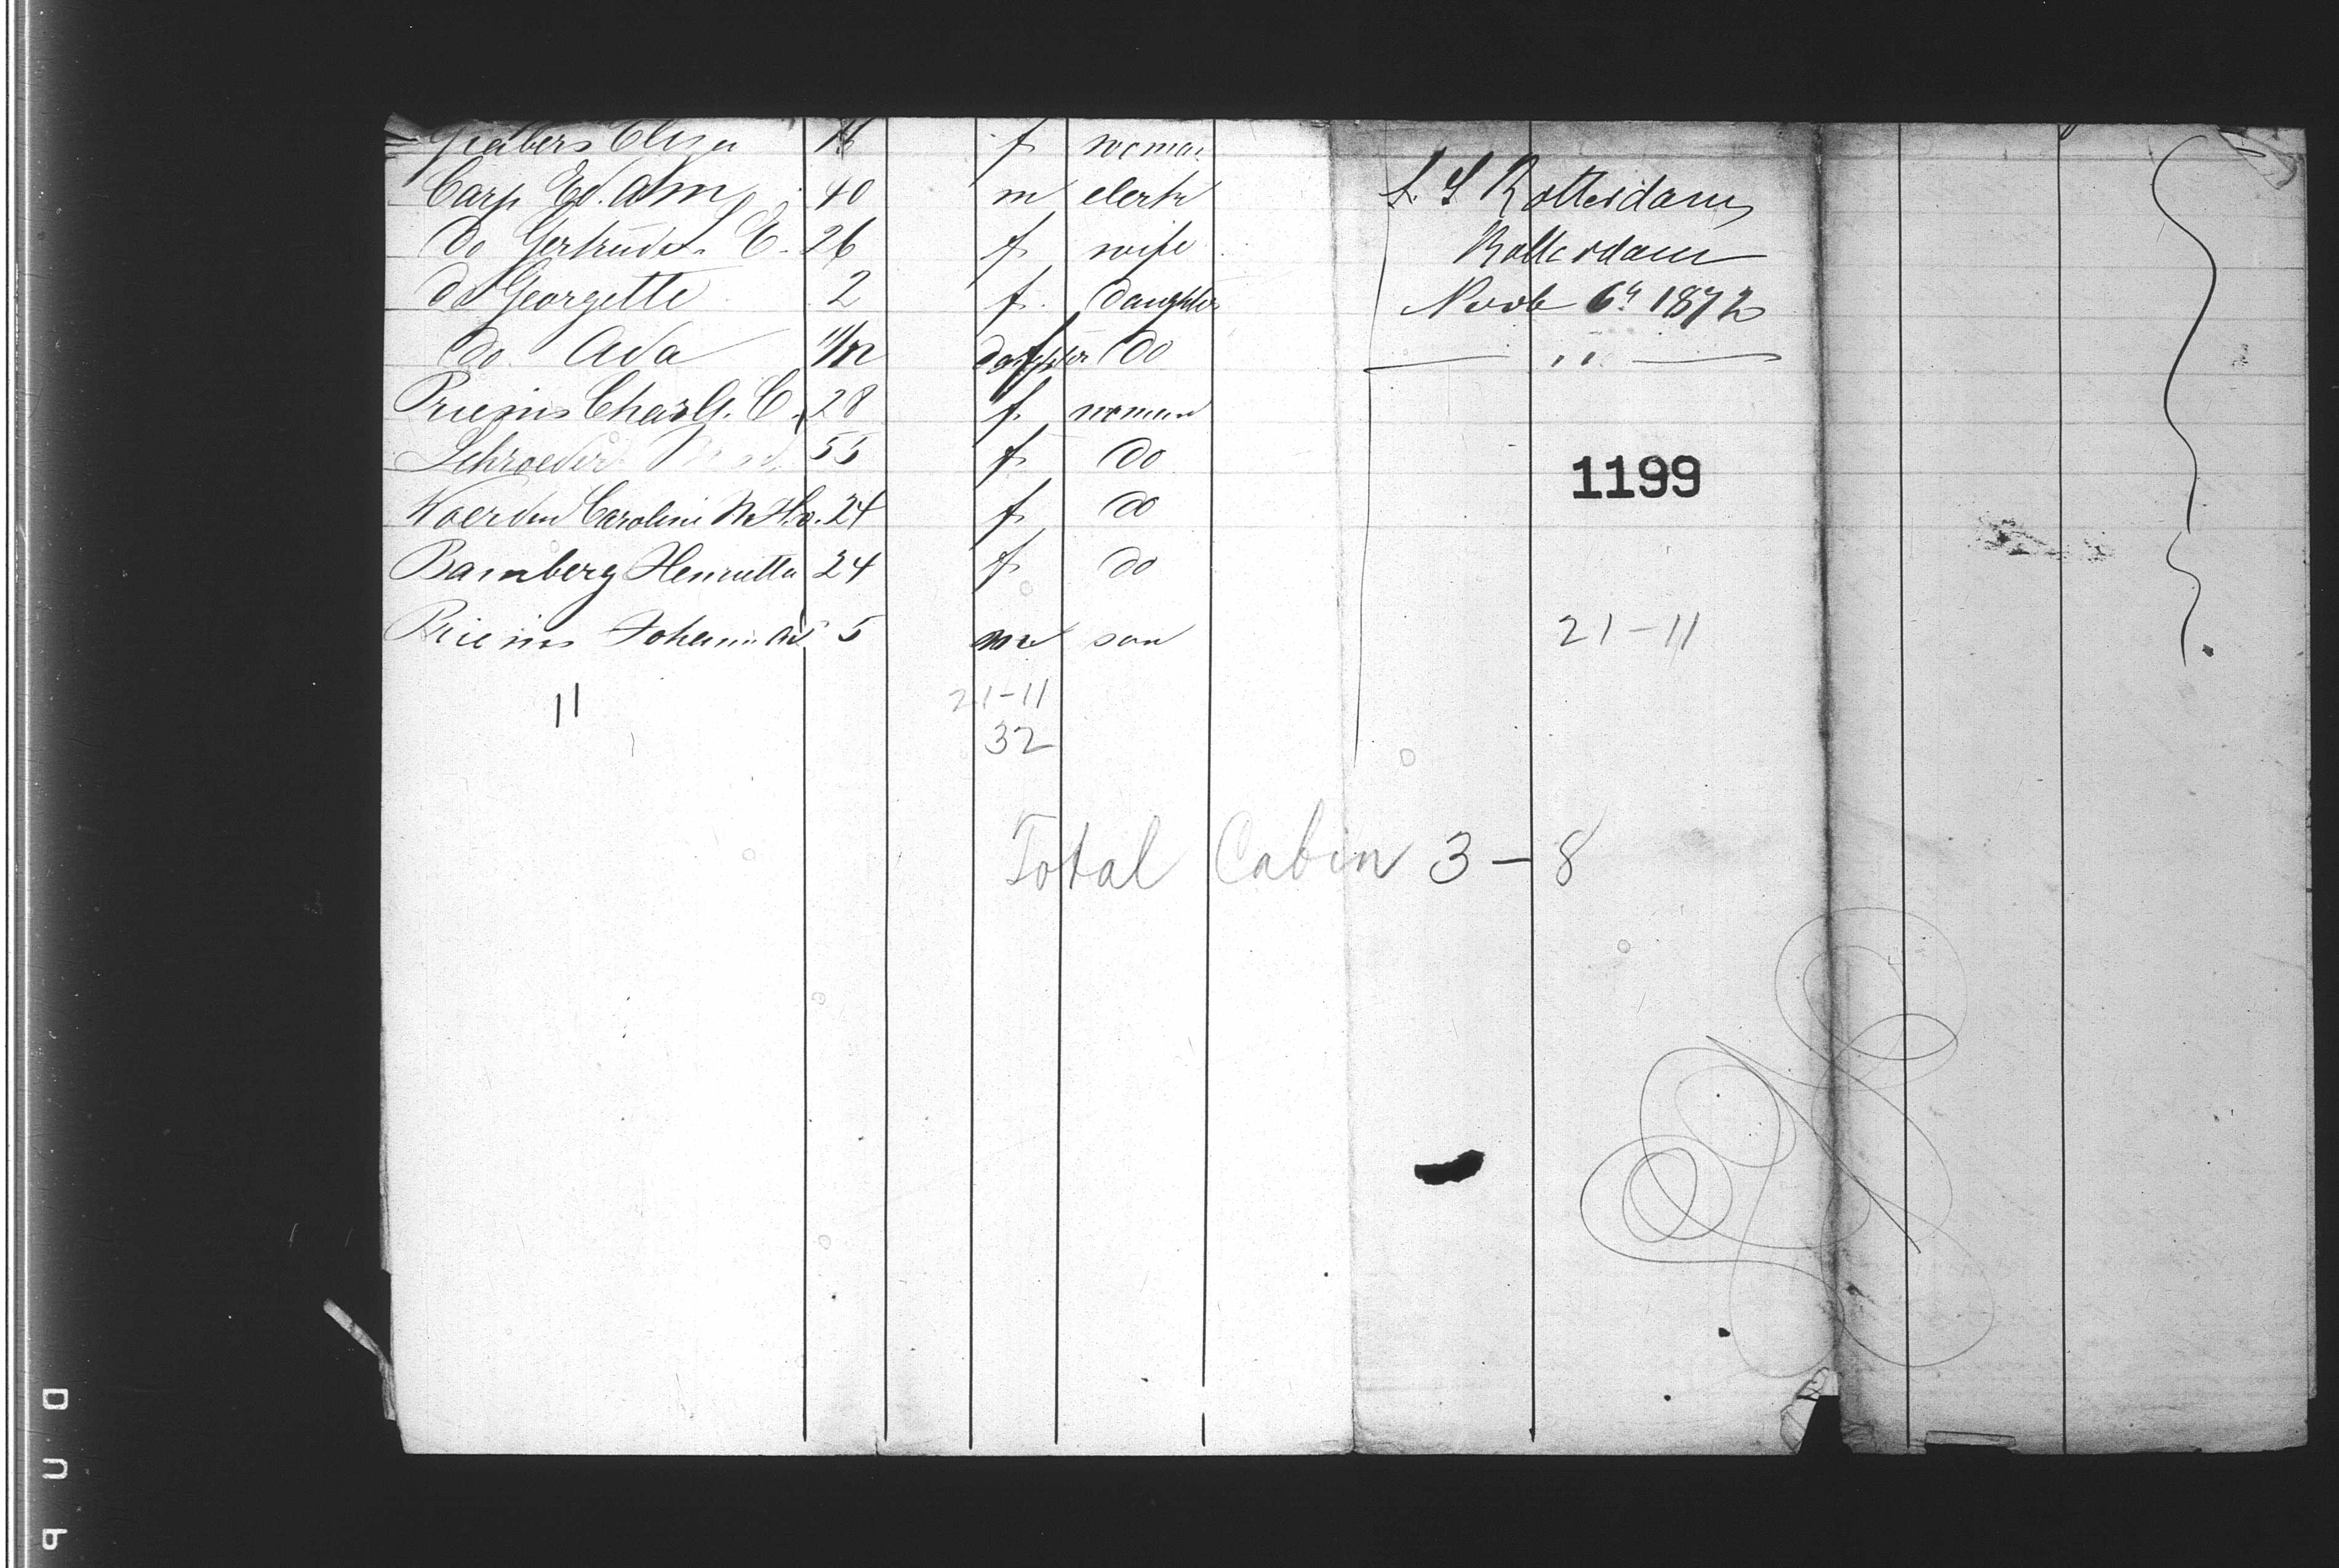 Elisa f woman
Carp Ed. Ahm 40 m clerk
do Gertrude E. 26 f wife
do Georgette 2 f. daughter
do. Ada 11/12 daughter do
Prieins Charlt. C. 28 f. woman
Schroeder 55 f. do
Woerden Caroline 24 f. do
Bamberg Henrietta 24 f. do
Prieins 5 m son
11
21-11
32
S. S Rotterdam
Rotterdam
Novb 6th 1872
"
1199
21-11
Total Cabin 3-8